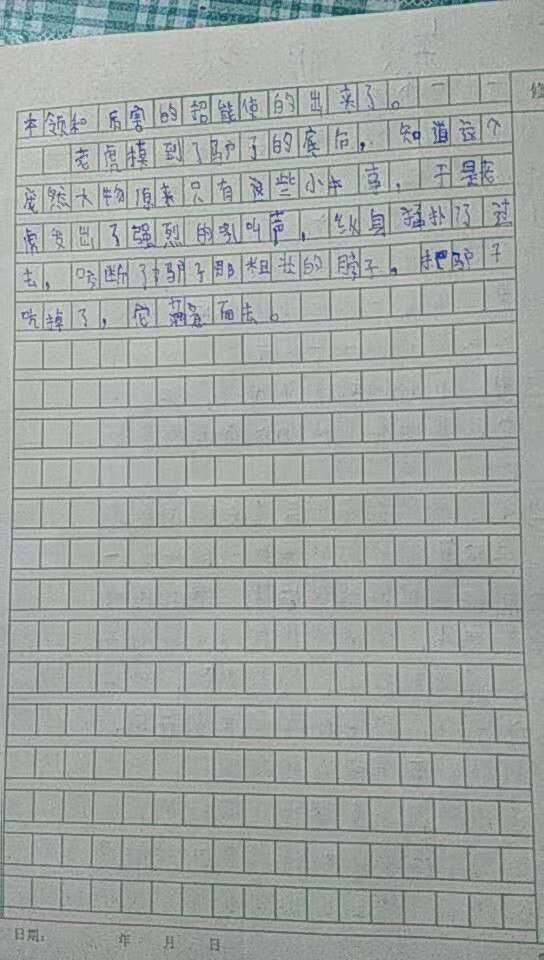 本领和厉害的招能使的出来了。
老虎摸到了驴子的底向，知道这个
庞然大物原来只有这些小本事，于是老
虎发出了强烈的吼叫声，纵身猛扑了过
去，咬断了驴子那粗壮的脖子，把驴子
吃掉了，它 而去。
日期： 年 月 日